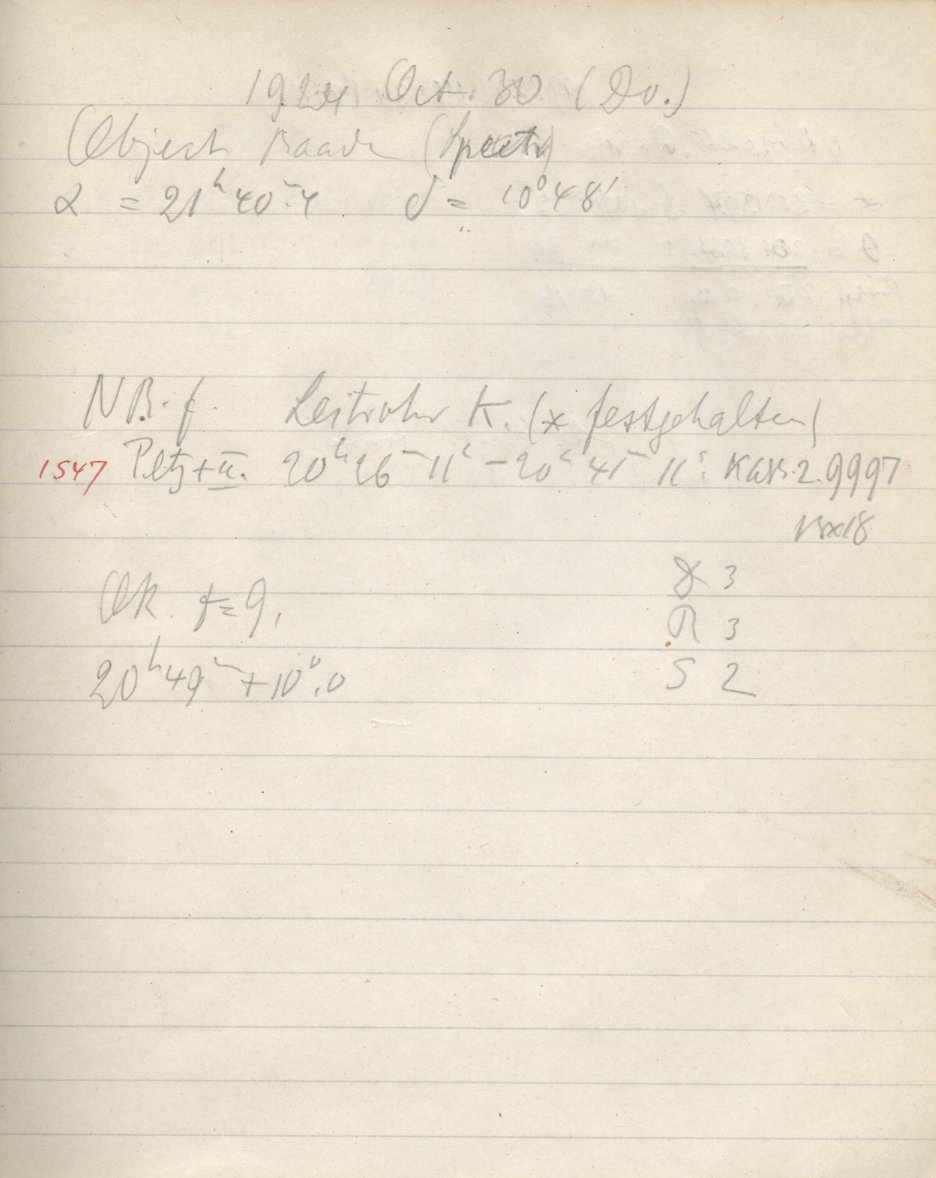 1924 Oct. 30 (Do.)
Object Baade (Spectr)
α = 21ʰ 40ᵐ.4 δ = 10° 48'
NB. f. Leitrohr K. (* festgehalten)
1547 Petz + u. 20ʰ 26ᵐ 11ˢ – 20ʰ 41ᵐ 11ˢ. Kass. 2. 9997
13x18
Ok. f = 9,
20ʰ 49ᵐ + 10°.0
3
R 3
S 2